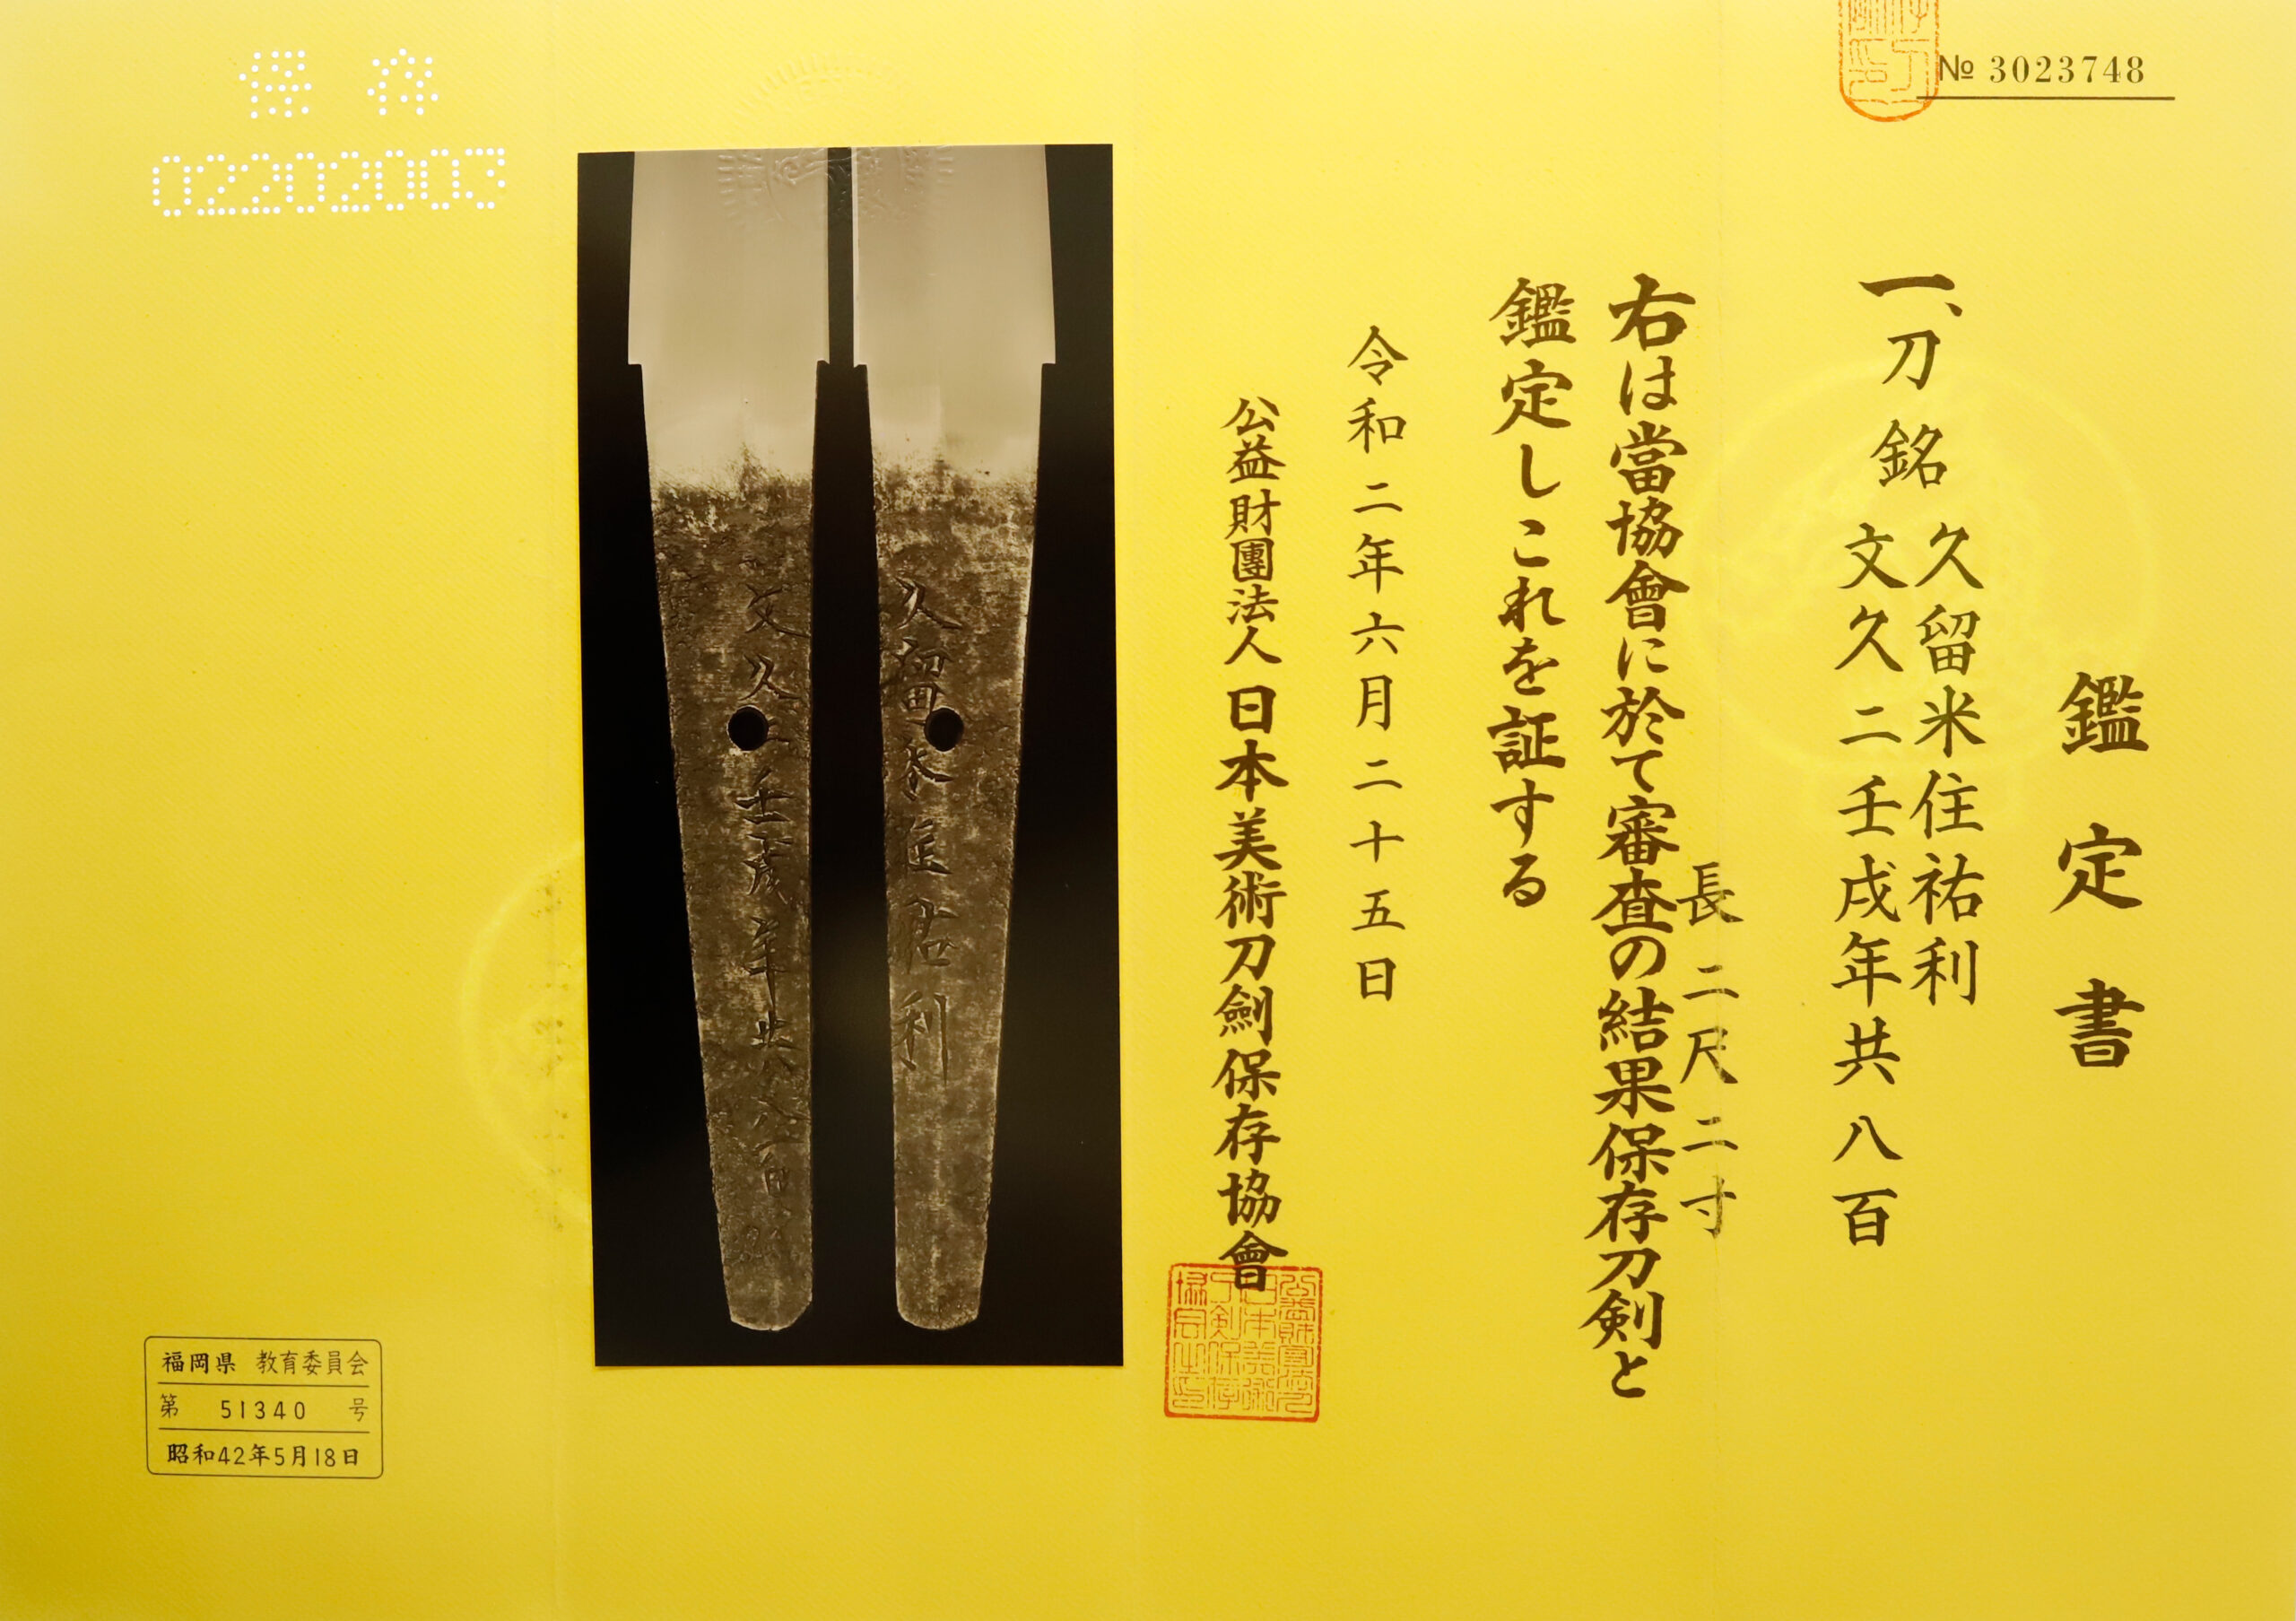 № 3023748
鑑定書
一、刀 銘 久留米住祐利
文久二壬戌年共八百
長 二尺二寸
右は當協會に於て審査の結果保存刀剣と
鑑定しこれを証する
令和二年六月二十五日
公益財團法人日本美術刀劍保存協會
久留米住祐利
文久二壬戌年共八百
保存
02202003
福岡県 教育委員会
第 51340 号
昭和42年5月18日